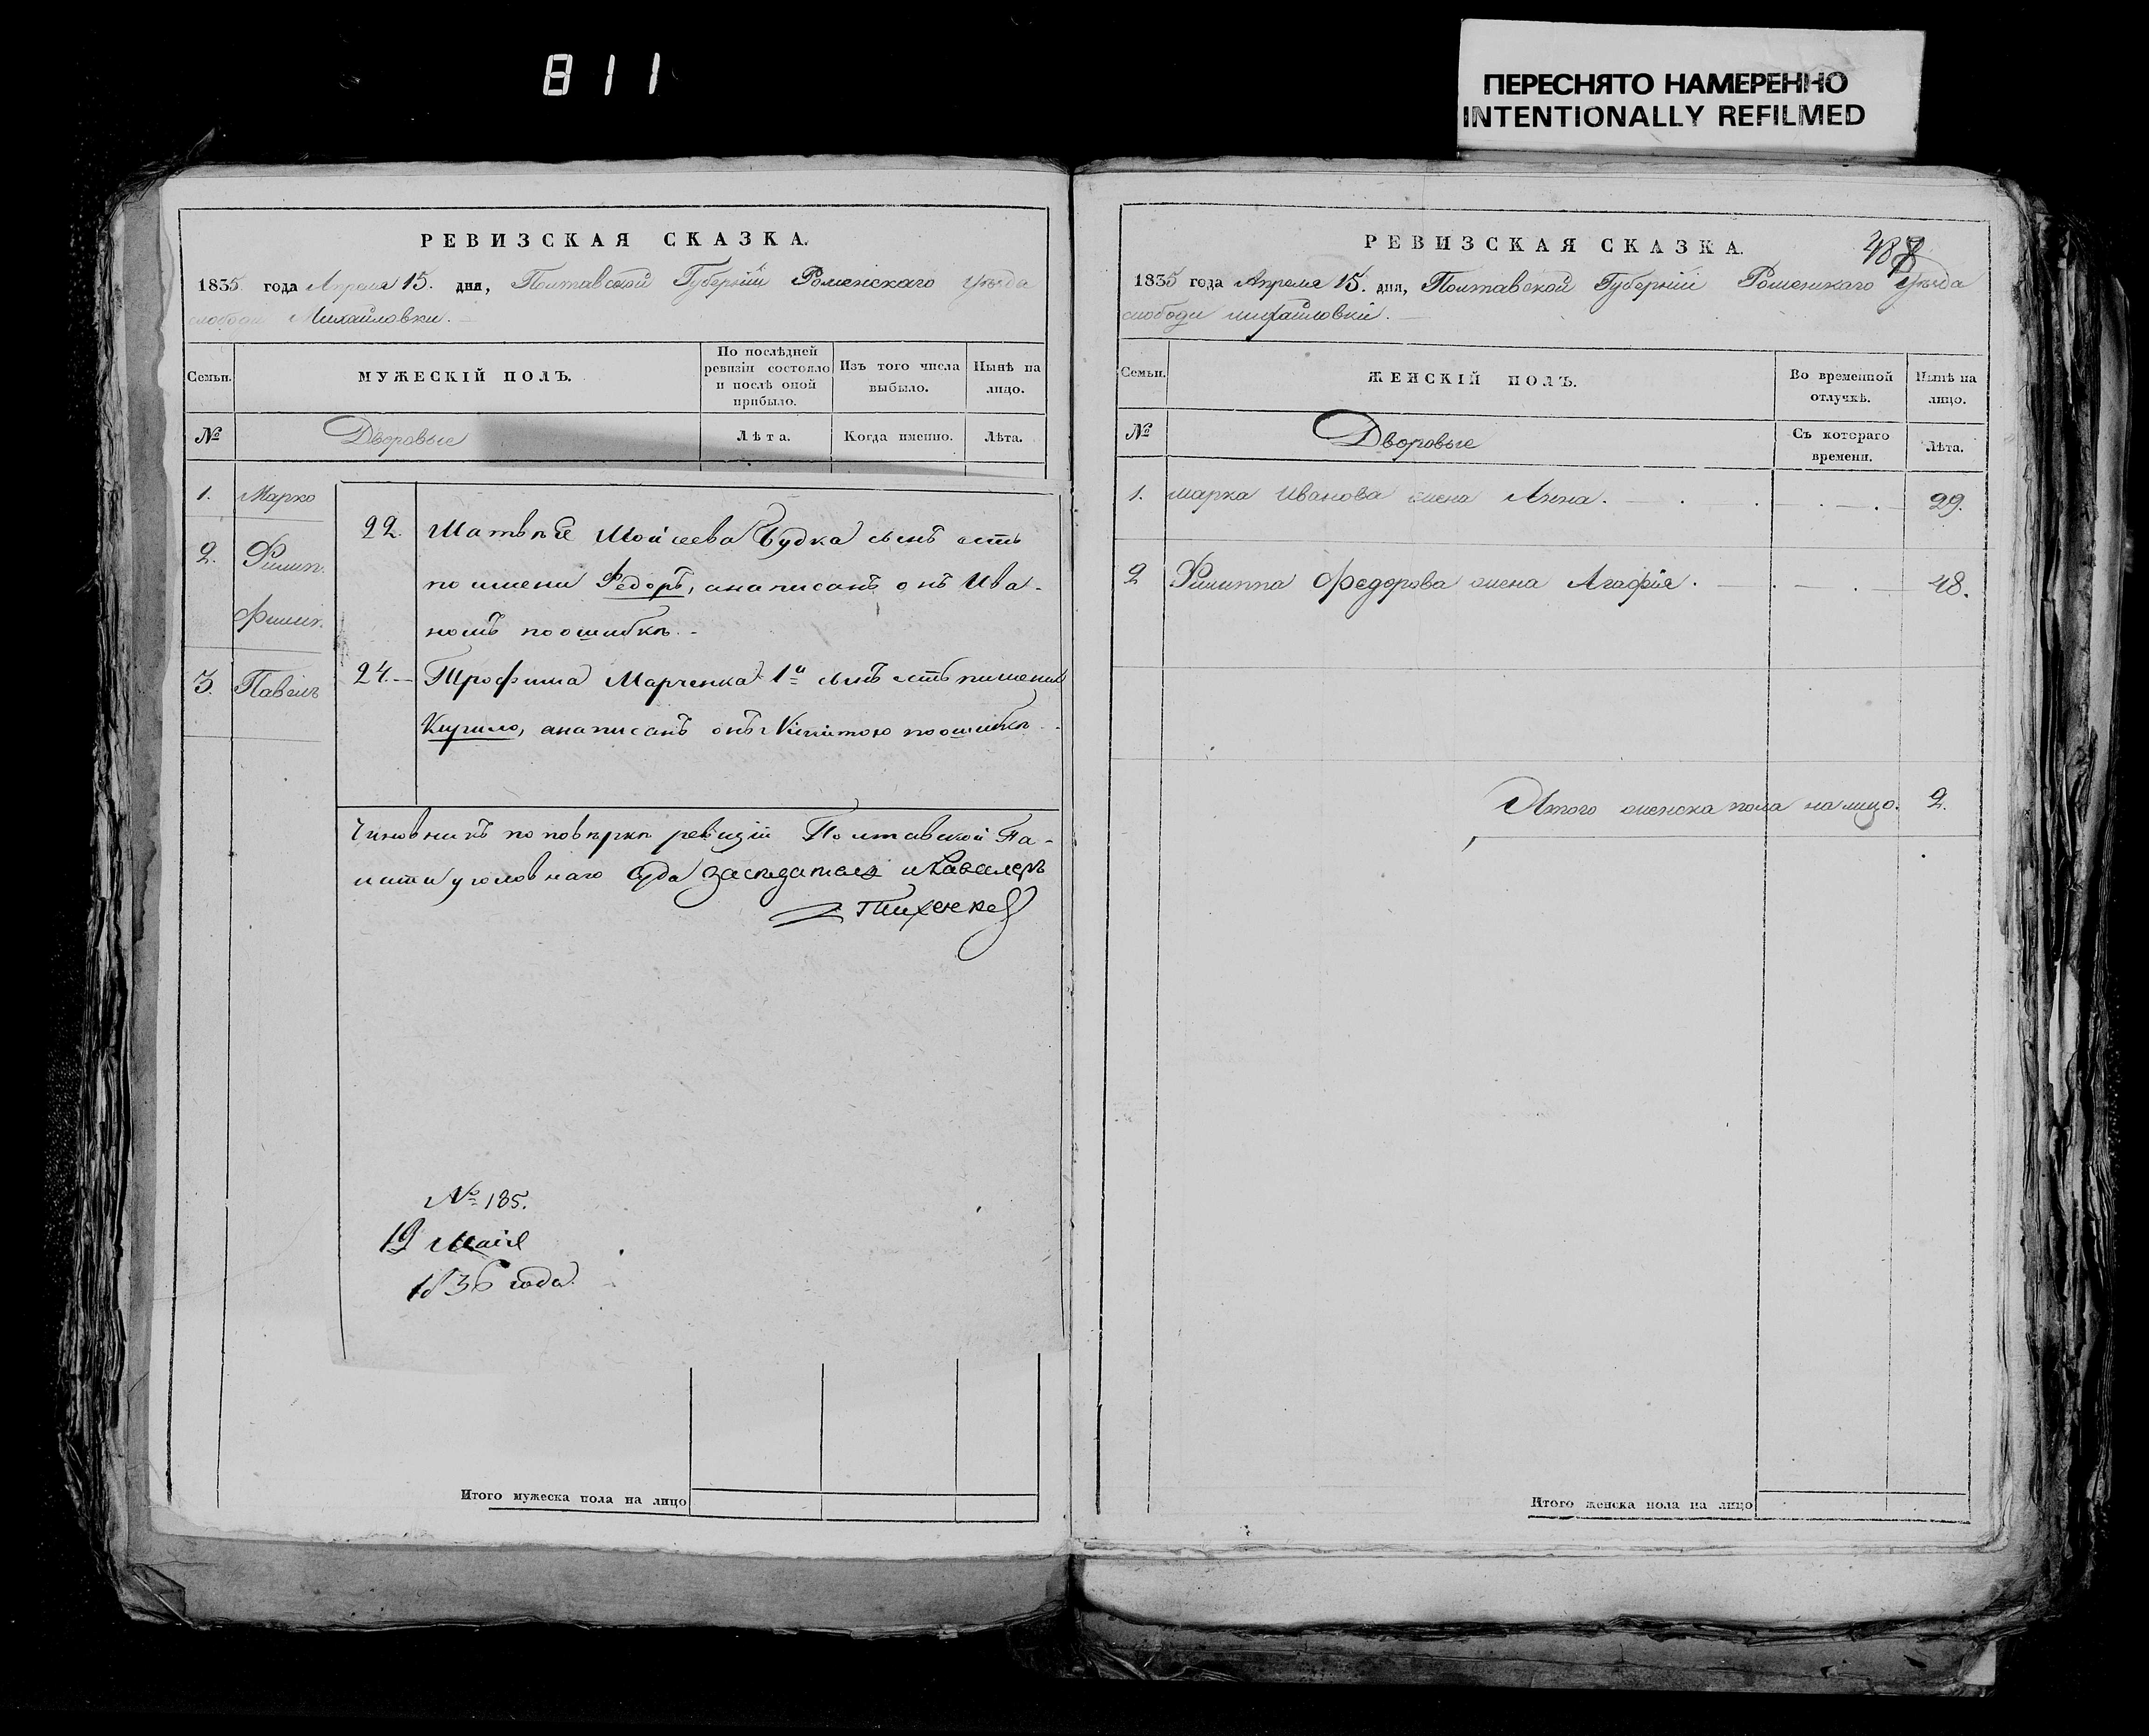 811
ПЕРЕСНЯТО НАМЕРЕННО
INTENTIONALLY REFILMED
РЕВИЗСКАЯ СКАЗКА.
1835 года Апреля 15. дня, Полтавской Губерніи Роменскаго уѣзда
слободи Михайловки.
Семьи.
МУЖЕСКІЙ ПОЛЪ.
По послѣдней
ревизіи состояло
и послѣ оной
прибыло.
Изъ того числа
выбыло.
Нынѣ на
лицо.
№
Дворовые
Лѣта.
Когда именно.
Лѣта.
1. Марко
2. Филип.
Филип.
3. Павелъ
22. Матвѣя Моисеева Будка сынъ есть
по имени Федоръ, а написанъ онъ Ива-
номъ по ошибкѣ.
24. Трофима Марченка 1й сынъ есть по имени
Кирило, а написанъ онъ Никитою по ошибкѣ.
Чиновникъ по повѣркѣ ревизіи Полтавской Па-
латы уголовнаго Суда Заседатель и Кавалеръ
№ 185.
19 Маія
1836 года.
Итого мужеска пола на лицо
488
РЕВИЗСКАЯ СКАЗКА.
1835 года Апреля 15. дня, Полтавской Губерніи Роменскаго Уѣзда
слободи михайловки.
Семьи.
ЖЕНСКІЙ ПОЛЪ.
Во временной
отлучкѣ.
Нынѣ на
лицо.
№
Дворовые
Съ котораго
времени.
Лѣта.
1. марка Иванова жена Анна. 29.
2 Филиппа Федорова жена Агафія. 48.
Итого женска пола налицо. 2.
Итого женска пола на лицо